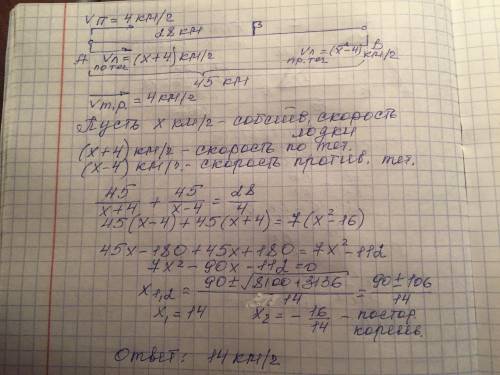 Vп = 4 км/г
28 км
В
А
Vл = (х+4) км/г
по теч
Vл = (х-4) км/г
пр. теч
В
45 км
Vт.р. = 4 км/г
Пусть х км/г - собств. скорость лодки
(х+4) км/г - скорость по теч.
(х-4) км/г. - скорость против. теч.
45/(х+4) + 45/(х-4) = 28/4
45(х-4) + 45(х+4) = 7(х²-16)
45х - 180 + 45х + 180 = 7х² - 112
7х² - 90х - 112 = 0
х1,2 = (90 ± √(8100 + 3136))/14 = (90 ± 106)/14
х1 = 14 х2 = - 16/14 - постор корень.
Ответ: 14 км/г